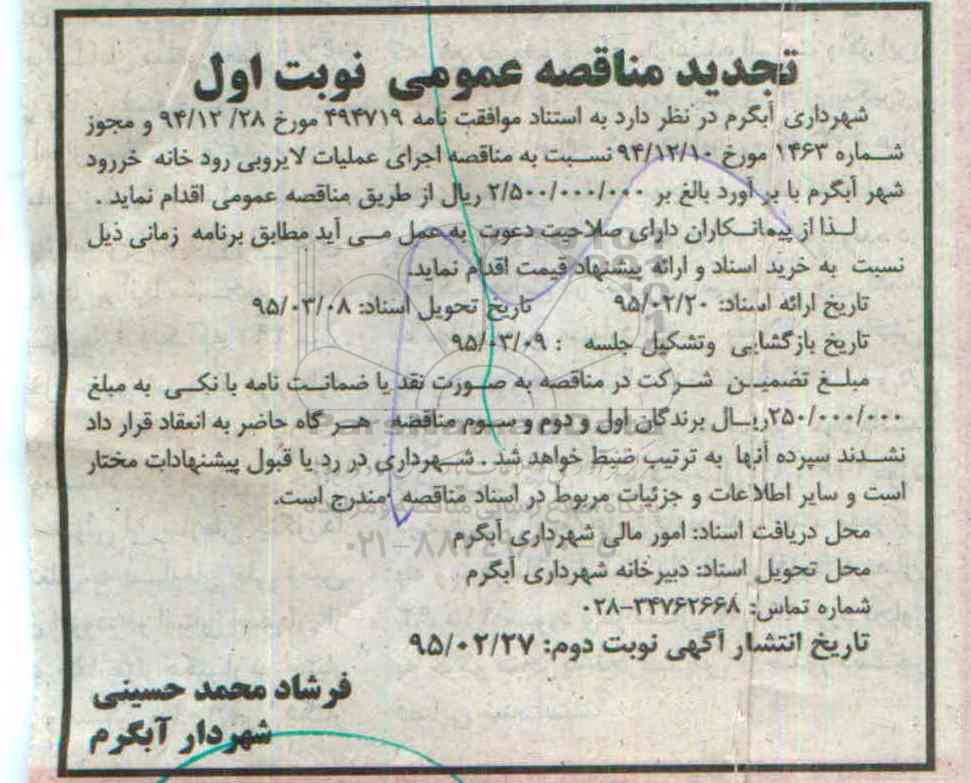 تجدید مناقصه عمومی نوبت اول
شهرداری آبگرم در نظر دارد به استناد موافقت نامه ۴۹۴۷۱۹ مورخ ۲۸/ ۹۴/۱۲ و مجوز
شماره ۱۴۶۳ مورخ ۹۴/۱۲/۱۰ نسبت به مناقصه اجرای عملیات لایروبی رود خانه خررود
شهر آبگرم با بر آورد بالغ بر ۲/۵۰۰/۰۰۰/۰۰۰ ریال از طریق مناقصه عمومی اقدام نماید .
لذا از پیمانکاران دارای صلاحیت دعوت به عمل می آید مطابق برنامه زمانی ذیل
نسبت به خرید اسناد و ارائه پیشنهاد قیمت اقدام نماید.
تاریخ ارائه اسناد: ۹۵/۰۲/۲۰ تاریخ تحویل اسناد: ۹۵/۰۳/۰۸
تاریخ بازگشایی وتشکیل جلسه : ۹۵/۰۳/۰۹
مبلغ تضمین شرکت در مناقصه به صورت نقد یا ضمانت نامه با نکی به مبلغ
۲۵۰/۰۰۰/۰۰۰ریال برندگان اول و دوم و سوم مناقصه هر گاه حاضر به انعقاد قرار داد
نشدند سپرده آنها به ترتیب ضبط خواهد شد . شهرداری در رد یا قبول پیشنهادات مختار
است و سایر اطلاعات و جزئیات مربوط در اسناد مناقصه مندرج است.
محل دریافت اسناد: امور مالی شهرداری آبگرم
محل تحویل اسناد: دبیرخانه شهرداری آبگرم
شماره تماس: ۳۴۷۶۲۶۶۸-۰۲۸
تاریخ انتشار آگهی نوبت دوم: ۹۵/۰۲/۲۷
فرشاد محمد حسینی
شهردار آبگرم